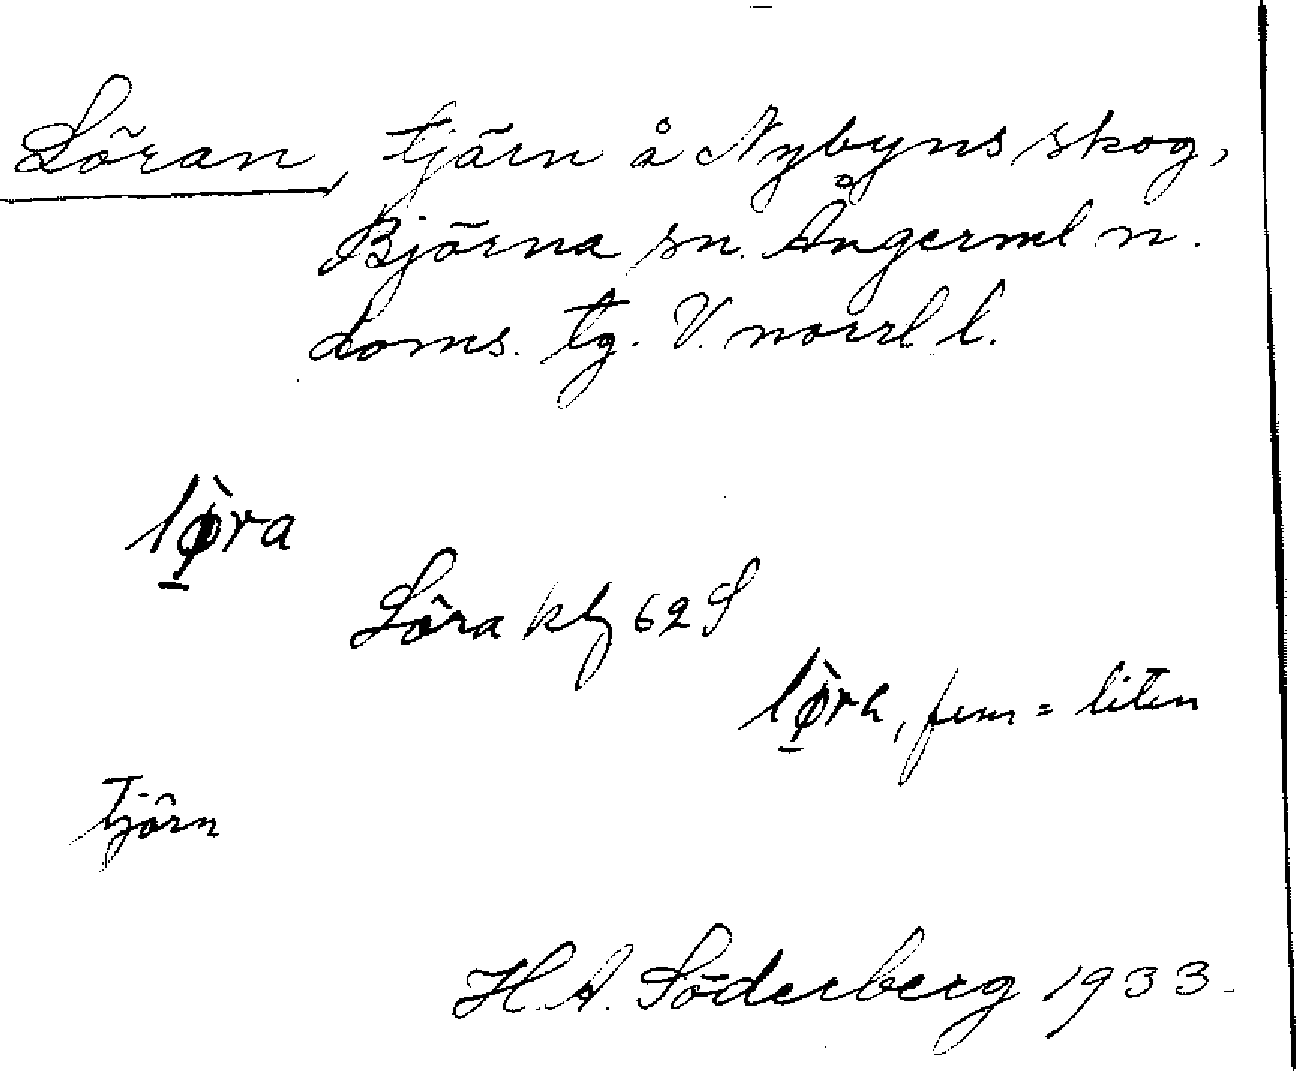 Löran, tjärn å Nybyns skog,
Björna sn. Ångerml n.
doms. tg. V. norrl l.
lø̀ra
Löra kbl 62 S
lø̀ra, fem = liten
tjörn
H. A. Söderberg 1933